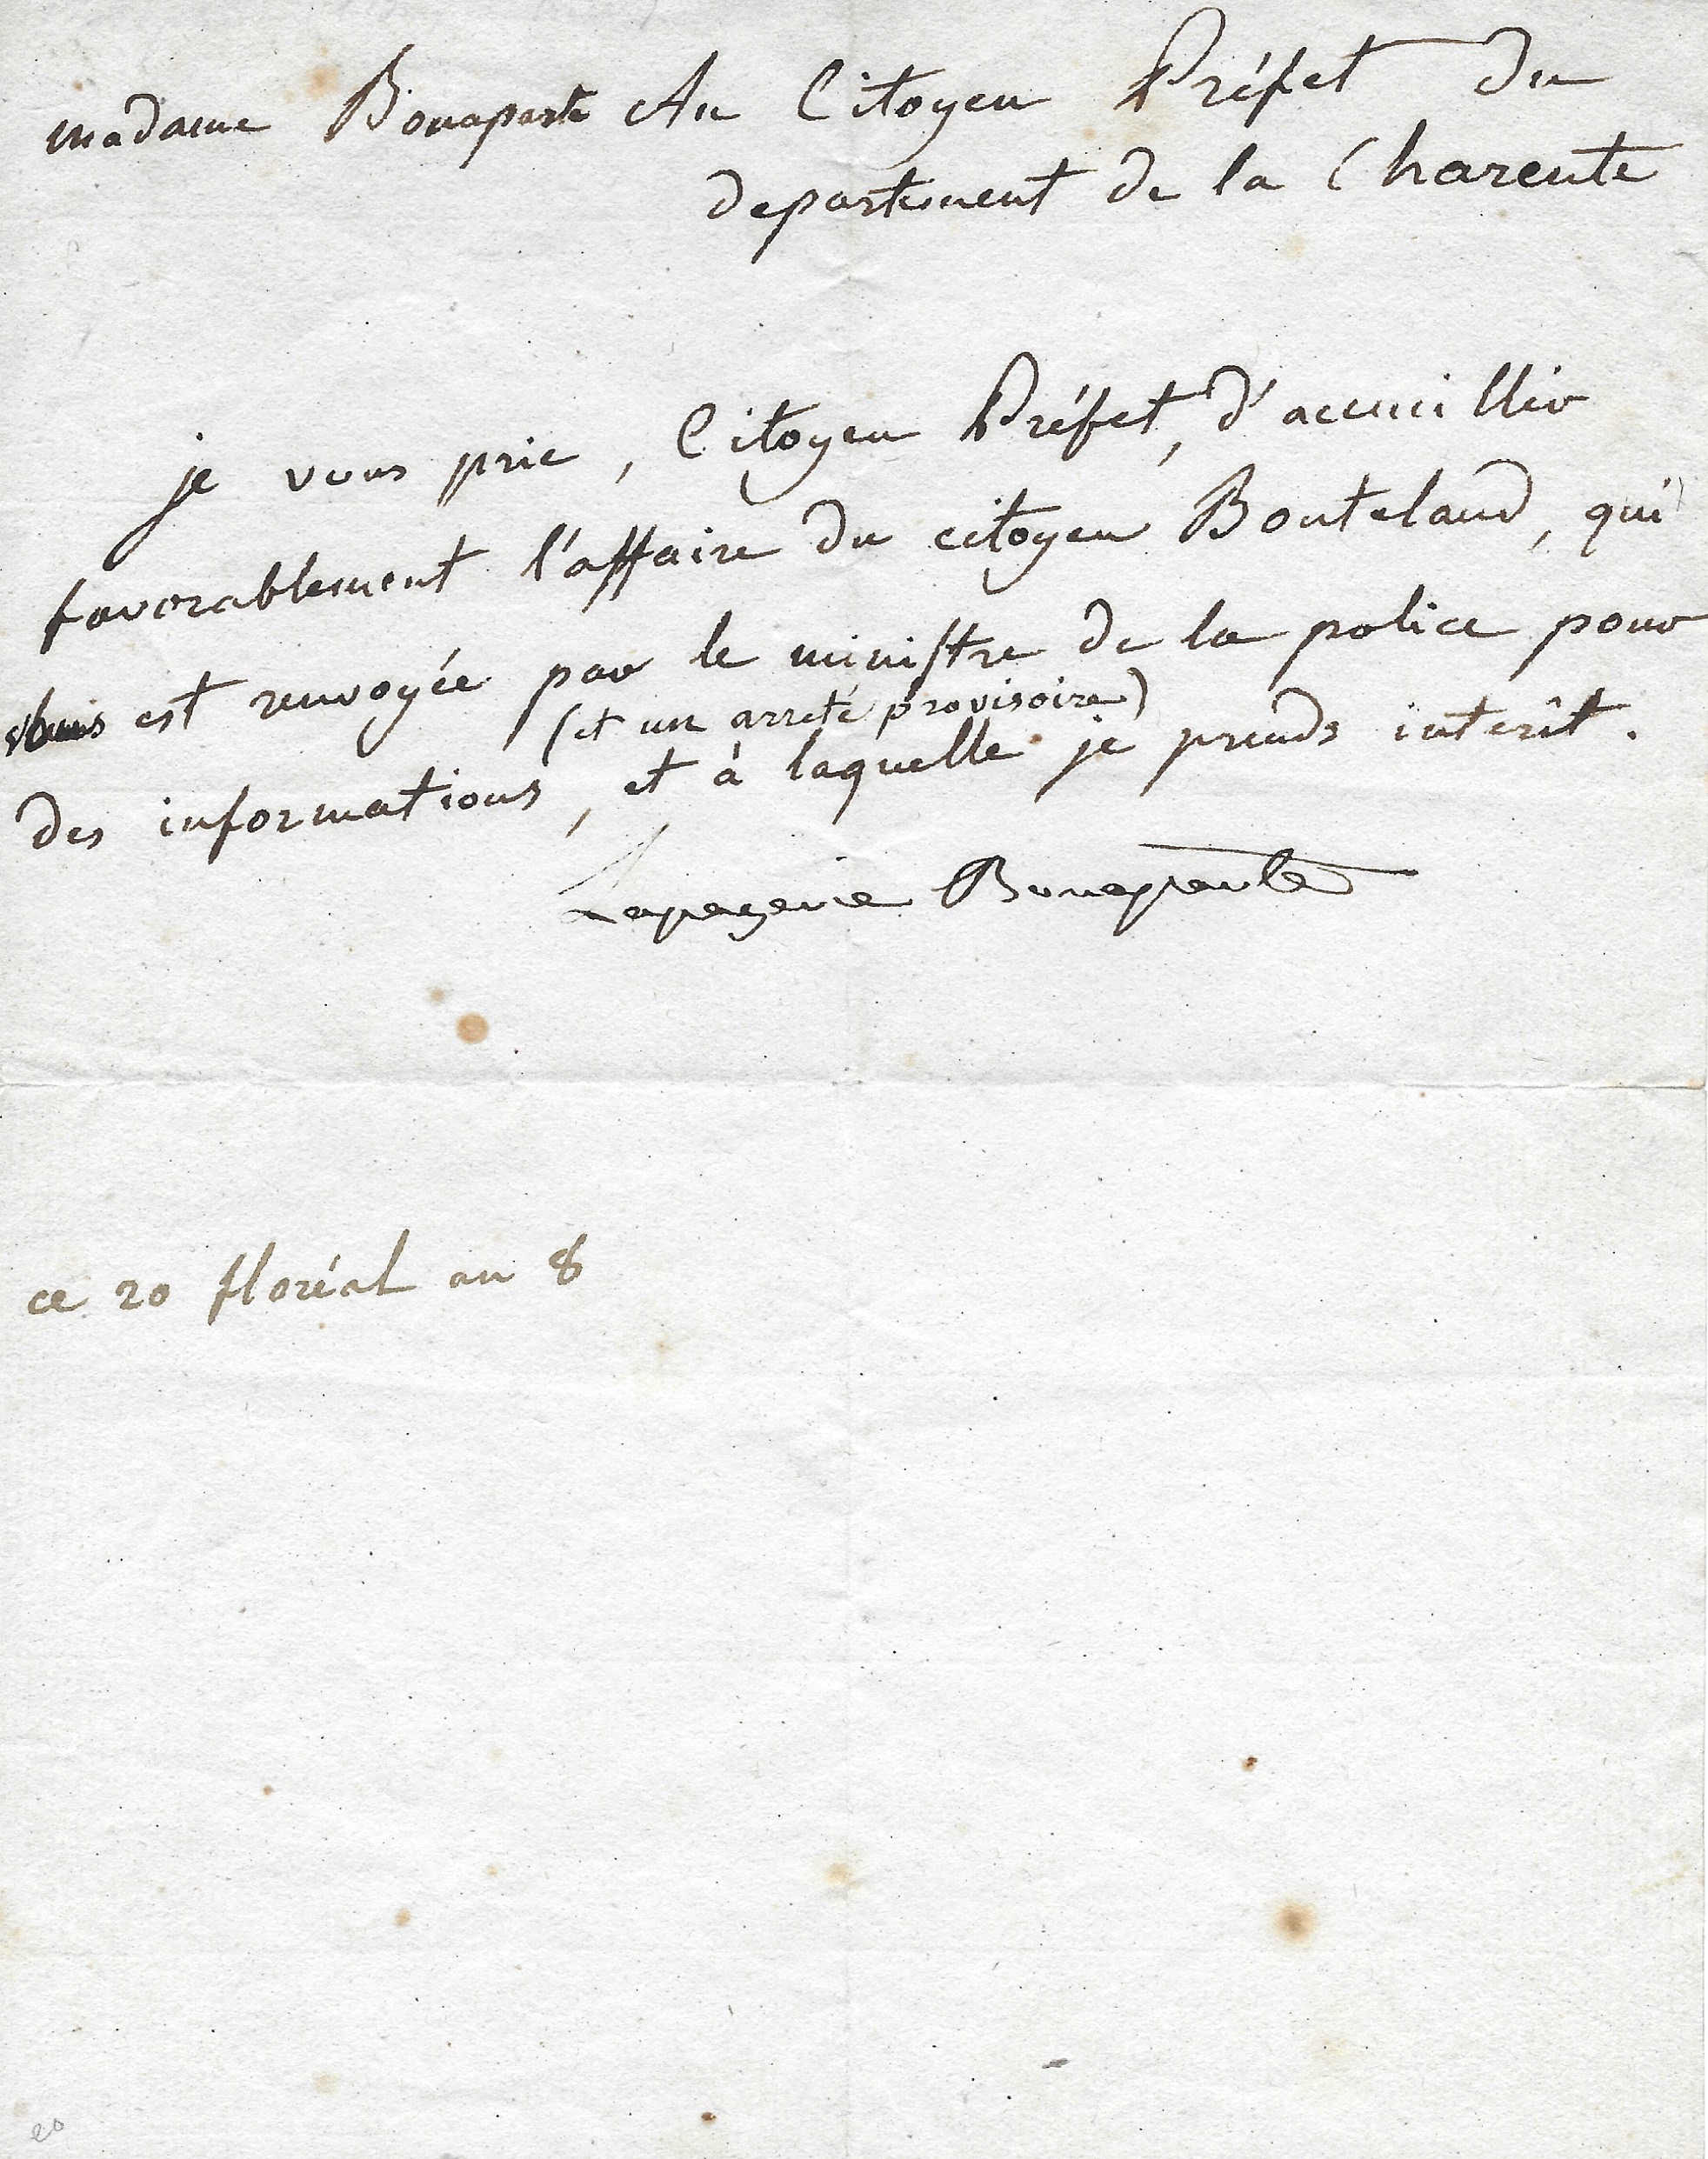 madame Bonaparte Au Citoyen Préfet du
departement de la Charente
je vous prie, Citoyen Préfet, d'accuillir
favorablement l'affaire du citoyen Bouteland, qui
vous est renvoyée par le ministre de la police pour
(et un arreté provisoire)
des informations, et à laquelle je prends interêt.
Lapagerie Bonaparte
ce 20 floréal an 8
20